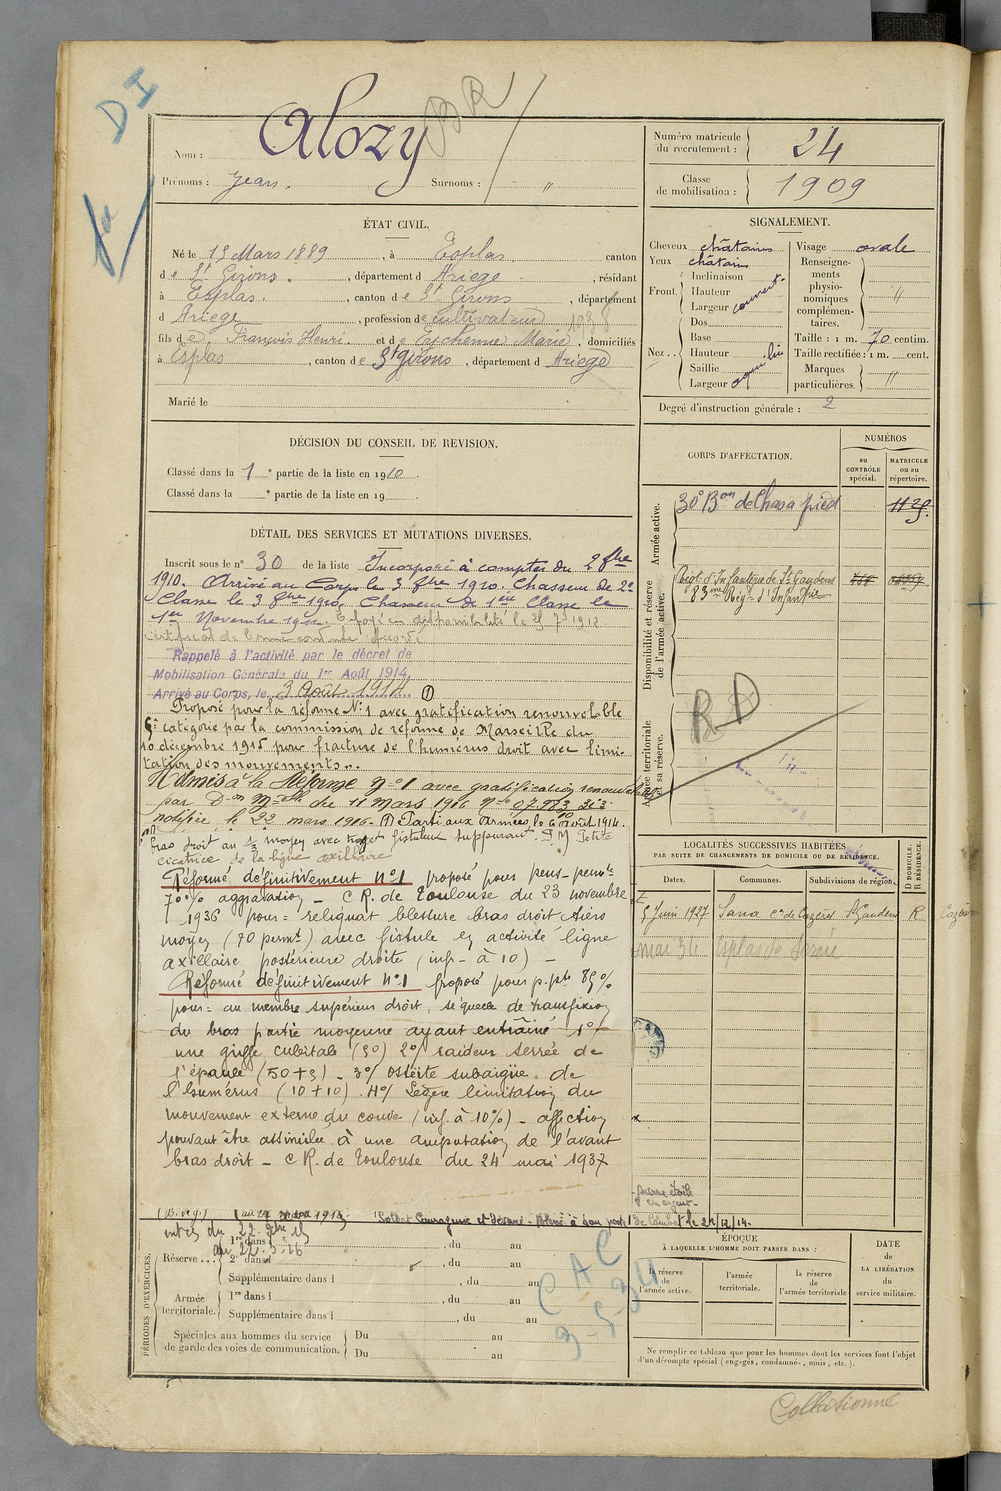 DI
Nom : Alozy
BR
Prénoms : Jean. Surnoms : "
Numéro matricule du recrutement : 24
Classe de mobilisation : 1909
ÉTAT CIVIL.
Né le 15 Mars 1889, à Esplas canton
de St Girons, département d Ariege, résidant
à Esplas, canton de St Girons, département
d Ariege, profession de cultivateur 1938
fils de François Henri et de Eychenne Marie, domiciliés
à Esplas, canton de St Girons, département d Ariege
Marié le
SIGNALEMENT.
Cheveux châtains
Yeux châtain
Front Inclinaison
Hauteur
Largeur couvert.
Nez Dos
Base
Hauteur
Saillie
Largeur
Visage ovale
Renseignements physionomiques complémentaires. "
Taille : 1 m. 70 centim.
Taille rectifiée : 1 m. cent.
Marques particulières. "
Degré d'instruction générale : 2
DÉCISION DU CONSEIL DE REVISION.
Classé dans la 1e partie de la liste en 1910.
Classé dans la e partie de la liste en 19
DÉTAIL DES SERVICES ET MUTATIONS DIVERSES.
Inscrit sous le n° 30 de la liste Incorporé à compter du 2 8bre
1910. Arrivé au Corps le 3 8bre 1910. Chasseur de 2e
Classe le 3 8bre 1910. Chasseur de 1ère Classe le
1er Novembre 1911. Envoyé en disponibilité le 25 7b 1912.
Certificat de bonne conduite accordé
Rappelé à l'activité par le décret de
Mobilisation Générale du 1er Août 1914.
Arrivé au Corps, le 3 Août 1914 (1)
Proposé pour la réforme N°1 avec gratification renouvelable
5e catégorie par la commission de réforme de Marseille du
10 décembre 1915 pour fracture de l'humérus droit avec limi-
tation des mouvements.
Admis à la Réforme N°1 avec gratification renouvelable
par Don Melle du 11 Mars 1916
notifiée le 22 mars 1916. (1) Parti aux Armées le août 1914.
bras droit au 1/3 moyen avec trajet fistuleux suppurant. Petite
cicatrice de la ligne axillaire
Réformé définitivement n°1 proposé pour pens- permte
70% aggravation - C R. de Toulouse du 23 novembre
1936 pour = reliquat blessure bras droit tiers
moyen (70 permt) avec fistule en activité ligne
axillaire postérieure droite (inf- à 10) -
Réformé définitivement n°1 proposé pour p. pte 85%
pour = au membre supérieur droit, séquelle de transfixion
du bras partie moyenne ayant entraîné 1°/
une griffe cubitale 2°/ raideur serrée de
l'épaule (50+5) - 3°/ ostéite subaigüe de
l'humérus (10+10). 4°/ Légère limitation du
mouvement externe du coude (inf. à 10%) - affection
pouvant être assimilée à une amputation de l'avant
bras droit - C R. de Toulouse du 24 mai 1937
CORPS D'AFFECTATION.
NUMÉROS
au CONTRÔLE spécial.
MATRICULE ou au répertoire.
Armée active.
30e Bon de Chas à pied 1125.
Disponibilité et réserve de l'armée active.
Régt d'Infanterie de St Gaudens
83ème Régt d'Infanterie
Armée territoriale et sa réserve.
RD
LOCALITÉS SUCCESSIVES HABITÉES
PAR SUITE DE CHANGEMENTS DE DOMICILE OU DE RÉSIDENCE.
Dates. Communes. Subdivisions de région. D DOMICILE. R RÉSIDENCE.
5 Juin 1927 Sana con de Cazères St Gaudens R
mai 36 Esplas de Sérou
x
Soldat Courageux et dévoué. Blessé à son poste de Combat le 21/12/14.
PÉRIODES D'EXERCICES.
Réserve... 1re dans l , du au
2e dans l , du au
Supplémentaire dans l , du au
Armée territoriale. 1re dans l , du au
Supplémentaire dans l , du au
Spéciales aux hommes du service de garde des voies de communication. Du au
Du au
CAC
3-5-34
ÉPOQUE
À LAQUELLE L'HOMME DOIT PASSER DANS :
la réserve de l'armée active.
l'armée territoriale.
la réserve de l'armée territoriale
DATE DE LA LIBÉRATION du service militaire.
Ne remplir ce tableau que pour les hommes dont les services font l'objet
d'un décompte spécial (engagés, condamnés, omis, etc.).
Collationné